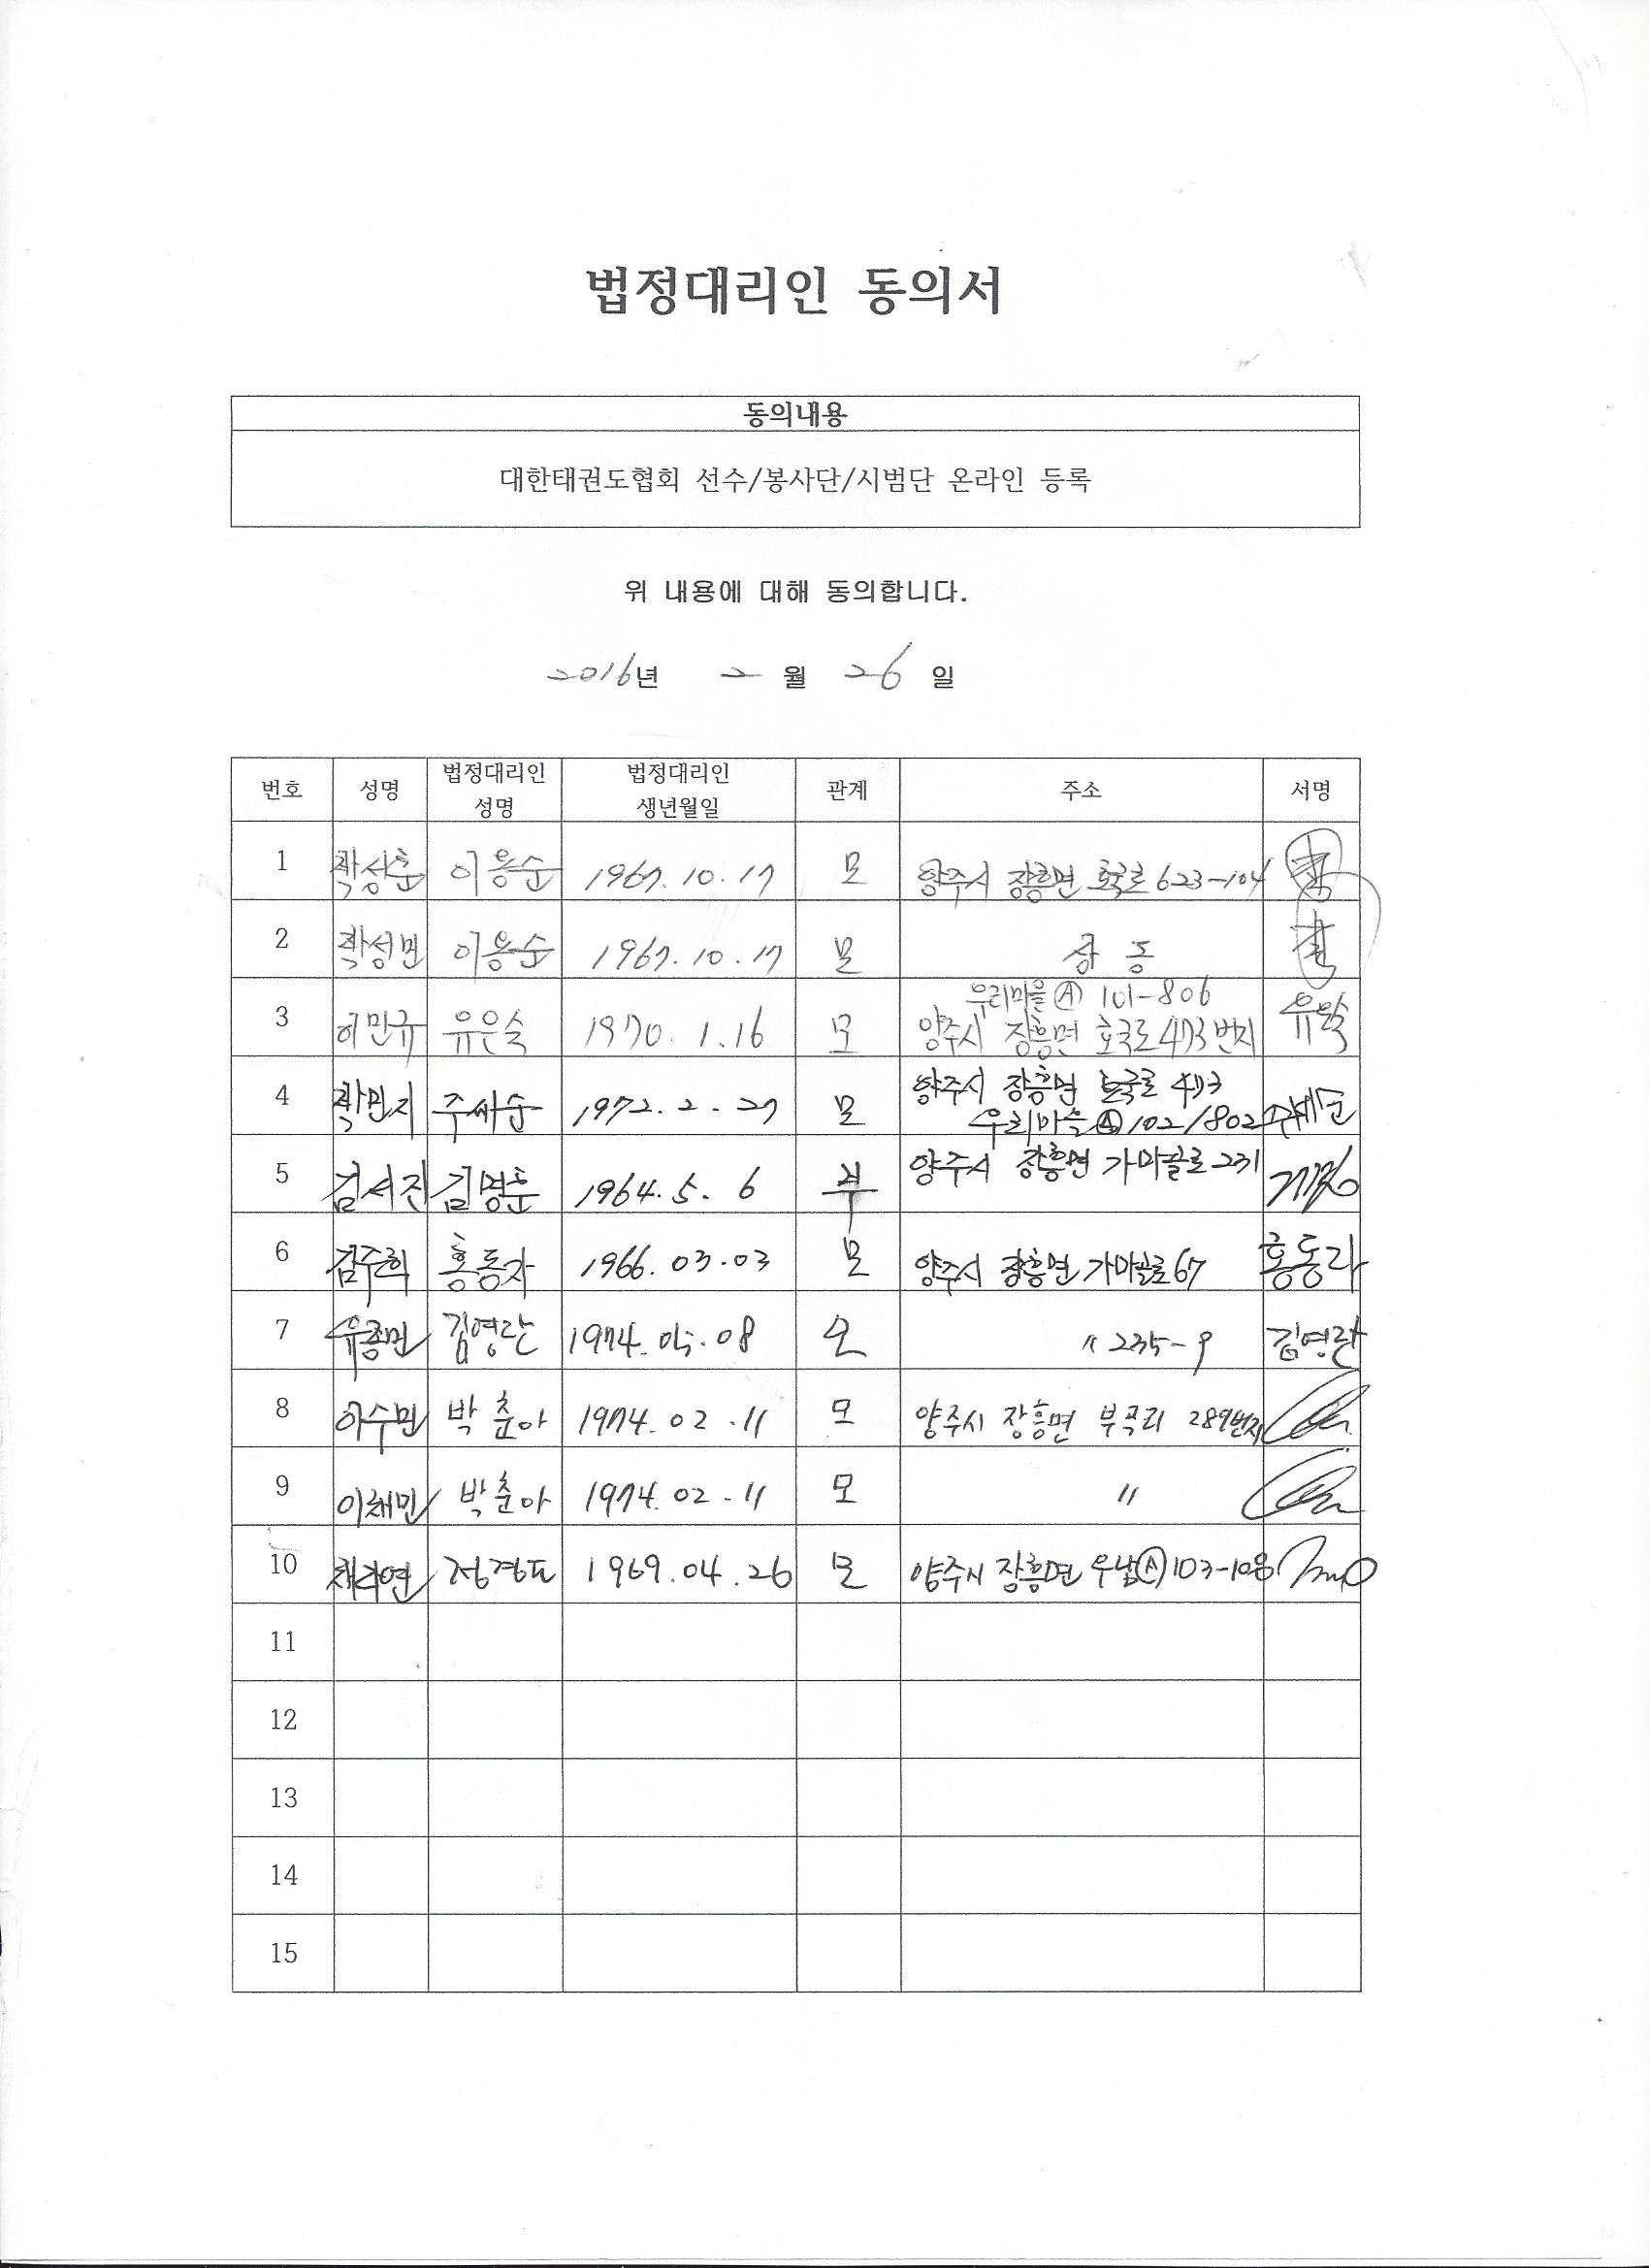 법정대리인 동의서
동의내용
대한태권도협회 선수/봉사단/시범단 온라인 등록
위 내용에 대해 동의합니다.
2016년 2 월 26 일
번호 성명 법정대리인 성명 법정대리인 생년월일 관계 주소 서명
1 곽성훈 이용순 1967.10.17 모 양주시 장흥면 호국로 623-104
2 곽성민 이용순 1967.10.17 모 상 동
3 이민규 유은숙 1970.1.16 모 우리마을Ⓐ 101-806
양주시 장흥면 호국로 473번지 유은숙
4 곽민지 주싸순 1972.2.27 모 양주시 장흥면 호국로 473
우리마을Ⓐ 102/802
5 김서진 김명훈 1964.5.6 부 양주시 장흥면 가마골로 231
6 김주희 홍동자 1966.03.03 모 양주시 장흥면 가마골로 67 홍동자
7 유종민 김영란 1974.05.08 모 〃 235-9 김영란
8 이수민 박춘아 1974.02.11 모 양주시 장흥면 부곡리 289번지
9 이채민 박춘아 1974.02.11 모 〃
10 1969.04.26 모 양주시 장흥면 우남Ⓐ 103-108
11
12
13
14
15